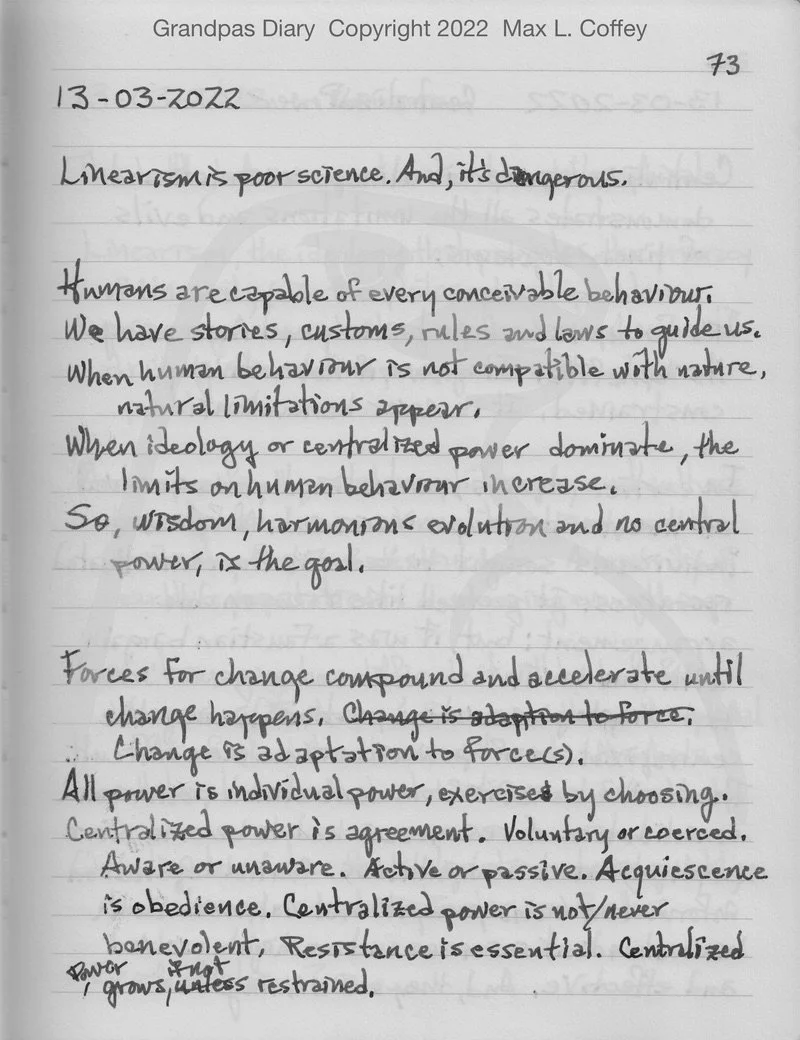 Grandpas Diary Copyright 2022 Max L. Coffey
73
13-03-2022
Linearism is poor science. And, it's dangerous.
Humans are capable of every conceivable behaviour.
We have stories, customs, rules and laws to guide us.
When human behaviour is not compatible with nature,
natural limitations appear.
When ideology or centralized power dominate, the
limits on human behaviour increase.
So, wisdom, harmonions evolution and no central
power, is the goal.
Forces for change compound and accelerate until
change happens. Change is adaption to force.
∴ Change is adaptation to force(s).
All power is individual power, exercised by choosing.
Centralized power is agreement. Voluntary or coerced.
Aware or unaware. Active or passive. Acquiescence
is obedience. Centralized power is not/never
benevolent. Resistance is essential. Centralized
power if not
, grows, unless restrained.